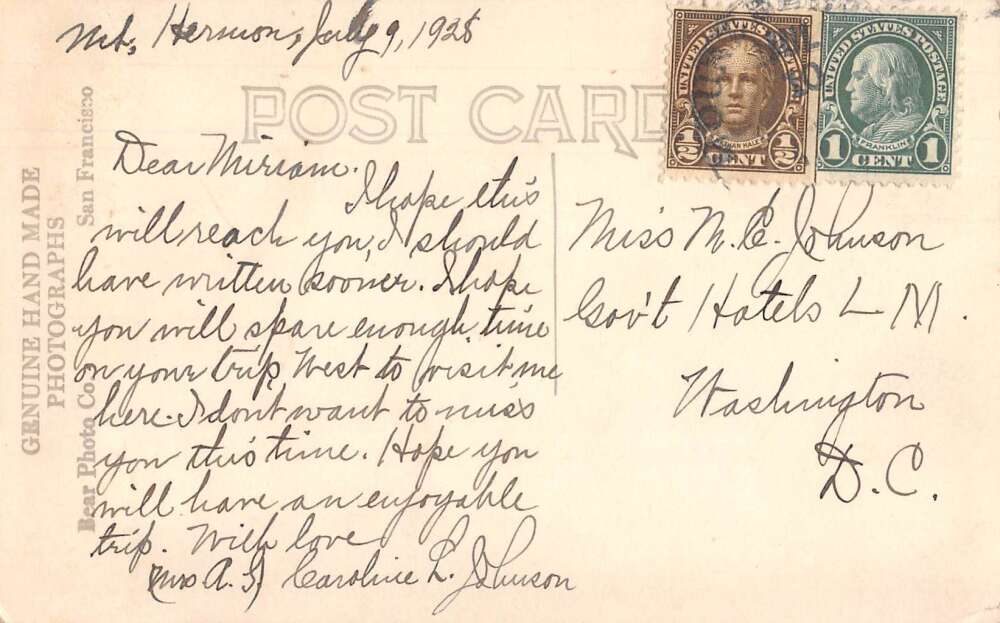 Mt. Hermon, July 9, 1928
POST CARD
GENUINE HAND MADE
PHOTOGRAPHS
Bear Photo Co.
San Francisco
UNITED STATES POSTAGE
NATHAN HALE
1/2 CENT 1/2
UNITED STATES POSTAGE
FRANKLIN
1 CENT 1
Dear Miriam.
I hope this
will reach you, I should
have written sooner. I hope
you will spare enough time
on your trip West to visit me
here. I don't want to miss
you this time. Hope you
will have an enjoyable
trip. With love
(Mrs A. S.) Caroline L. Johnson
Miss M. E. Johnson
Gov't Hotels L M.
Washington
D.C.